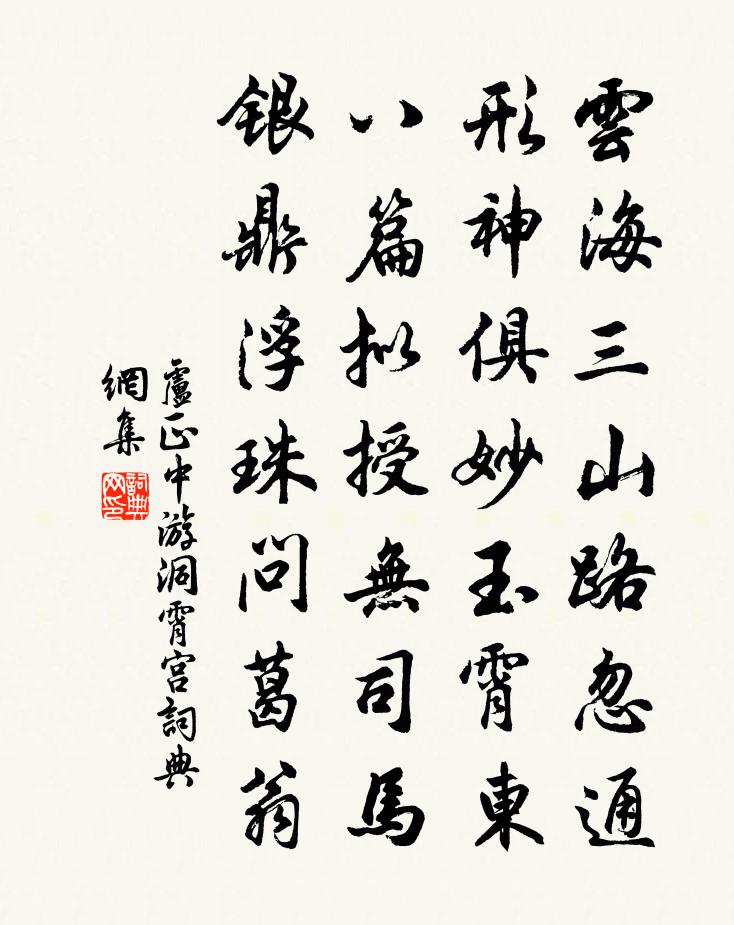 雲海三山路忽通
形神俱妙玉霄東
八篇拟授無司馬
銀鼎浮珠問葛翁
盧正中游洞霄宫詞典
網集
詞典网印